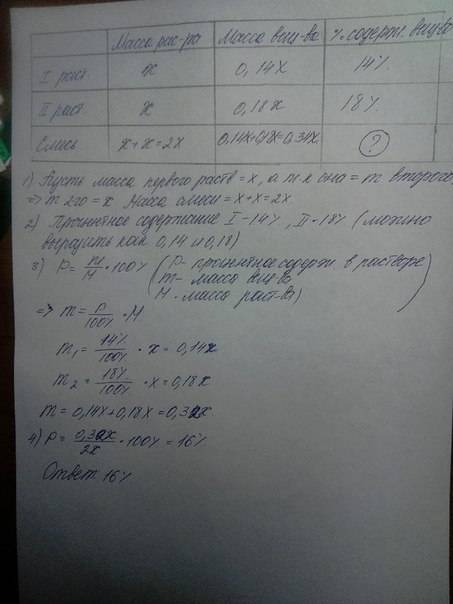 Масса рас-ра Масса вещ-ва % содерж. вещ-ва
I раст. x 0,14x 14%
II раст x 0,18x 18%
Смесь x+x=2x 0,14x+0,18x=0,34x ?
1) Пусть масса первого раств = x, а т к она = m второго,
=> m 2го = x Масса смеси = x+x=2x
2) Процентное содержание I-14%, II-18% (можно
выразить как 0,14 и 0,18)
3) P = m/M · 100% (P- процентное содерж в растворе
m- масса вещ-ва
M- масса раст-ва)
=> m = P/100% · M
m1 = 14%/100% · x = 0,14x
m2 = 18%/100% · x = 0,18x
m = 0,14x+0,18x=0,32x
4) P = 0,32x/2x · 100% = 16%
Ответ 16%